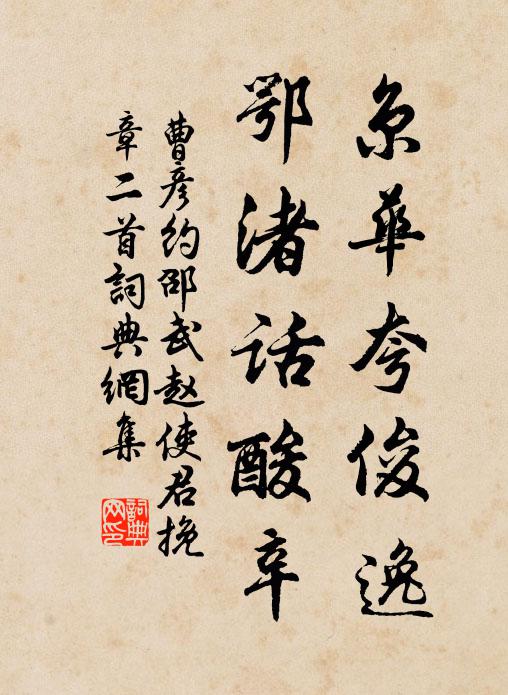 京華夸俊逸
鄂渚話酸辛
曹彦約邵武赵使君挽
章二首詞典網集
詞典
网印